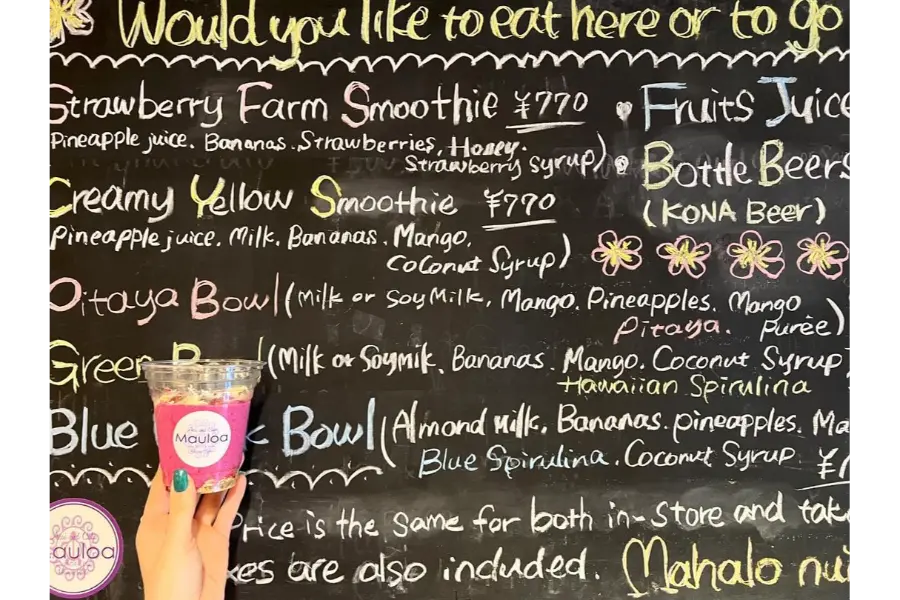 Would you like to eat here or to go
Strawberry Farm Smoothie ¥770
Pineapple juice. Bananas. Strawberries, Honey.
Strawberry Syrup)
Creamy Yellow Smoothie ¥770
Pineapple juice. Milk. Bananas. Mango.
Coconut Syrup)
Fruits Juice
Bottle Beers
(KONA Beer)
Pitaya Bowl (Milk or Soy Milk, Mango. Pineapples. Mango
Pitaya. Purée)
Green (Milk or Soymilk, Bananas. Mango. Coconut Syrup
Hawaiian Spirulina
Blue Bowl (Almond milk. Bananas. pineapples. Ma
Blue Spirulina. Coconut Syrup ¥1
Mauloa
Price is the same for both in-store and take
xes are also included. Mahalo nui
Mauloa